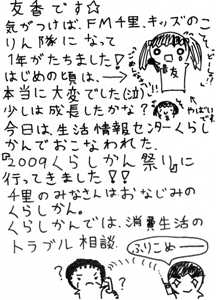 友香です☆
気がつけば、FM千里、キッズのこ
りん隊に なって
1年がたちました!!
はじめの頃は、
本当に大変でした(泣)
少しは成長したかな?
今日は、生活情報センターくらし
かんでおこなわれた、
『2009くらしかん祭り』に
行ってきました!!
千里のみなさんはおなじみの
くらしかん。
くらしかんでは、消費生活の
トラブル相談
友
ふりこめー